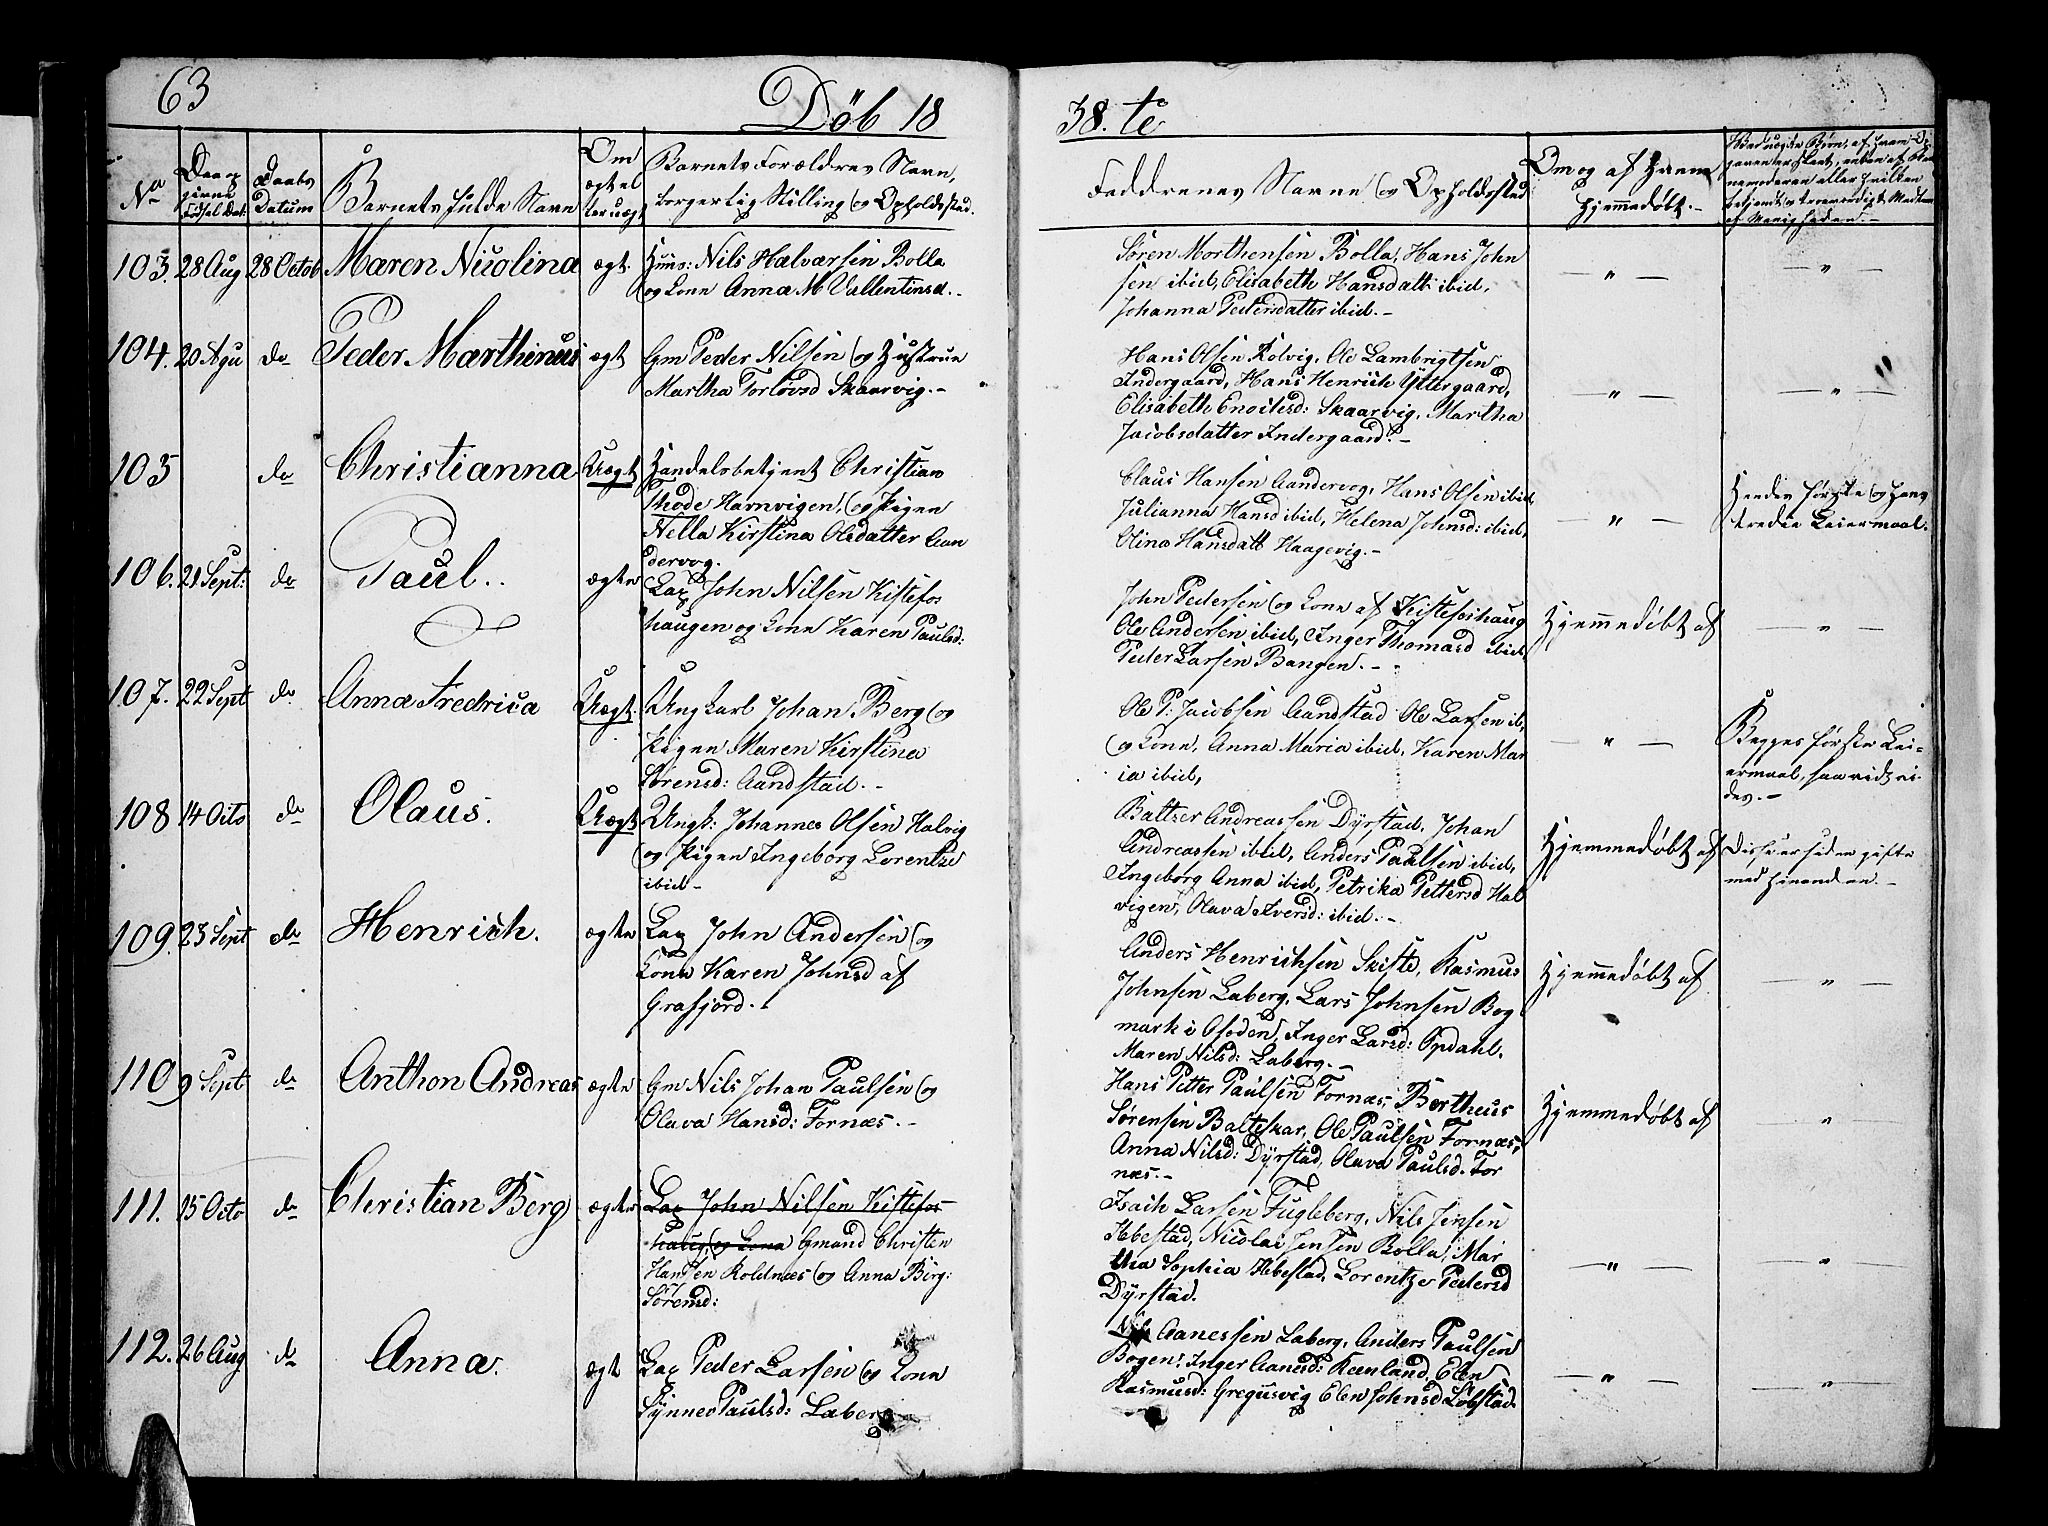 63
Döb 18
38.te
No
Dag og
givne
födsel Dat:
Daabs
Datum
Barnets fulde Navn
Om
ægte el
ler uægt
Barnets Forældres Navn,
borgerlig Stilling og Opholdsstad.
Faddrenes Navne og Opholdsstad
Om og af hvem
hjemmedöbt.-
103. 28 Aug 28 Octob Maren Nicolina ægt. Huus: Nils Halvorsen Bolla
og Kone Anna M Vallentinsd.-
Sören Morthensen Bolla, Hans John
sen ibid, Elisabeth Hansdatt ibid,
Johanna Pedersdatter ibid.-
104. 20 Agu do Peder Marthinus ægt Gm Peder Nilsen og Hustrue
Martha Torlövsd Skaarvig.-
Hans Olsen Rolvig, Ole Lambrigtsen
Indergaard, Hans Henrich Yttergaard,
Elisabeth Enoiksd: Skaarvig, Martha
Jacobsdatter Indergaard.-
105 do Christianna Uægt Handelsbetjent Christian
Thode Havnvigen, og Pigen
Nella Kirstina Olsdatter Aan
dervog.
Claus Hansen Aandervog, Hans Olsen ibid
Julianna Hansd ibid, Helena Johnsd: ibid,
Olina Hansdatt Haagevig.-
Hendes förste og hans
tredie Leiermaal.
106. 21 Sept: do Paul.. ægte Lap John Nilsen Kistefos
haugen og Kone Karen Paulsd:
John Pedersen og Kone af Kistefoshaug
Ole Andersen ibid, Inger Thomasd ibid,
Peder Larsen Bangen.-
Hjemmedöbt af
107. 22 Sept do Anna Fredrica Uægt. Ungkarl Johan Berg og
Pigen Maren Kirstina
Sörensd: Aandstad.-
Ole P. Jacobsen Aandstad Ole Larsen ib,
og Kone, Anna Maria ibid, Karen Mar
ia ibid,
Begges förste Lei-
ermaal, saavidt vi
des.-
108 14 Octo do Olaus. Uægt Ungk: Johannes Olsen Halvig
og Pigen Ingeborg Lorentze
ibid-
Baltzer Andreassen Dyrstad, Johan
Andreassen ibid, Anders Paulsen ibid,
Ingeborg Anna ibid, Petrika Pettersd Hal
vigen, Olava Iversd: ibid.-
Hjemmedöbt af
Disse er siden gifte
med hinanden.-
109. 23 Sept do Henrich. ægte Lap John Andersen og
Kone Karen Johnsd af
Grafjord.
Anders Henrichsen Skifte, Rasmus
Johnsen Laberg, Lars Johnsen Bog
mark i Ofoden, Inger Larsd: Opdahl.
Maren Nilsd: Laberg.-
Hjemmedöbt af
110 9 Sept do Anthon Andreas ægte Gm Nils Johan Paulsen og
Olava Hansd: Fornæs.-
Hans Petter Paulsen Fornæs, Bertheus
Sörensen Balteskar, Ole Paulsen Fornæs,
Anna Nilsd: Dyrstad, Olava Paulsd. For
næs.-
Hjemmedöbt af
111. 15 Octo do Christian Berg ægte Lap John Nilsen Kistefos
haug, og Kone Gmand Christen
Hansen Roldnæs og Anna Birg:
Sörensd:
Isach Larsen Fugleberg, Nils Jensen
Ibestad, Nicolai Jensen Bolla, Mar
tha Sophia Ibestad, Lorentze Pedersd
Dyrstad.
112. 26 Aug do Anna. ægt Lap Peder Larsen og Kone
Synneo Paulsd: Laberg
Nils Aanessen Laberg, Anders Paulsen
Bogen, Inger Aanesd: Reenland, Elen
Rasmusd: Gregusvig Elen Johnsd Löbstad.